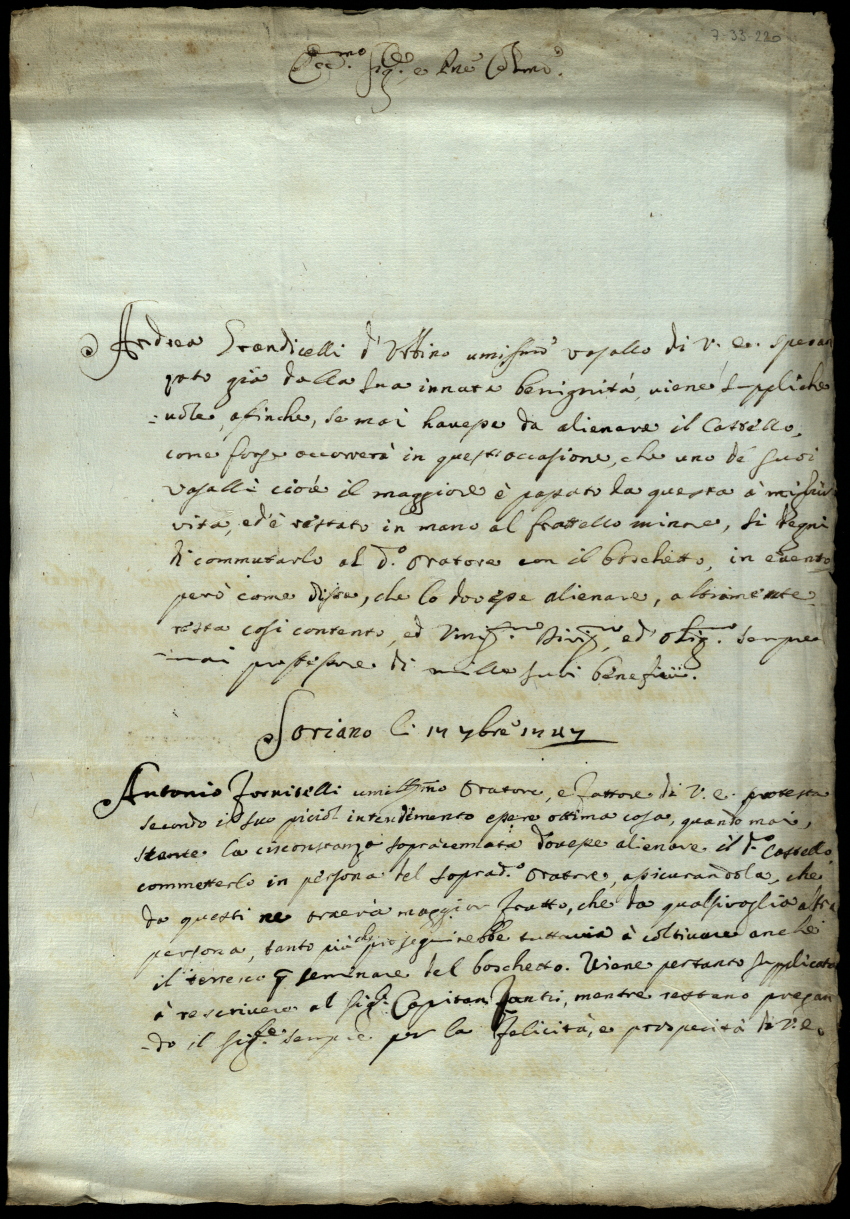 7-33-220
Ecc.mo Sig.re e Pne Colmo.
Andrea Grandicelli d'Urbino umilismo vasallo di V. E. speran
zato già dalla sua innata benignità, viene suppliche
=vole, afinche, se mai havesse da alienare il Castello,
come forse occorrerà in quest'occasione, che uno de suoi
vasalli cioè il maggiore è passato da questa à miglior
vita, ed'è restato in mano al fratello minore, si degni
di commutarlo al d.o Oratore con il boschetto, in evento
però come disse, che lo dovesse alienare, altrimente
resta cosi contento, ed ed oblig.mo sempre
mai professore di mille suoi benefizii.
Soriano li 17 7bre 1747
Antonio Fornicelli umilissmo Oratore, e Fattore di V. E. protesta
secondo il suo picciol intendimento essere ottima cosa, quando mai,
stante la circonstanza sopracennata dovesse alienare il d.o Castello,
commetterlo in persona del soprad.o Oratore, assicurandola, che
da questi ne traerà maggior frutto, che da qualsivoglia altra
persona, tanto più che proseguirebbe tuttavia à coltivare anche
il terreno p seminare del boschetto. Viene pertanto supplicata
à rescrivere al Sig.r Capitan Fantis, mentre restano pregan
=do il Sig.re sempre per la felicità, e prosperità di V. E.